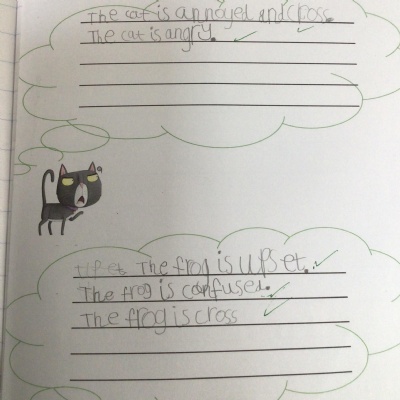 The cat is annoyed and cross.
The cat is angry.
upset The frog is upset.
The frog is confused.
The frog is cross